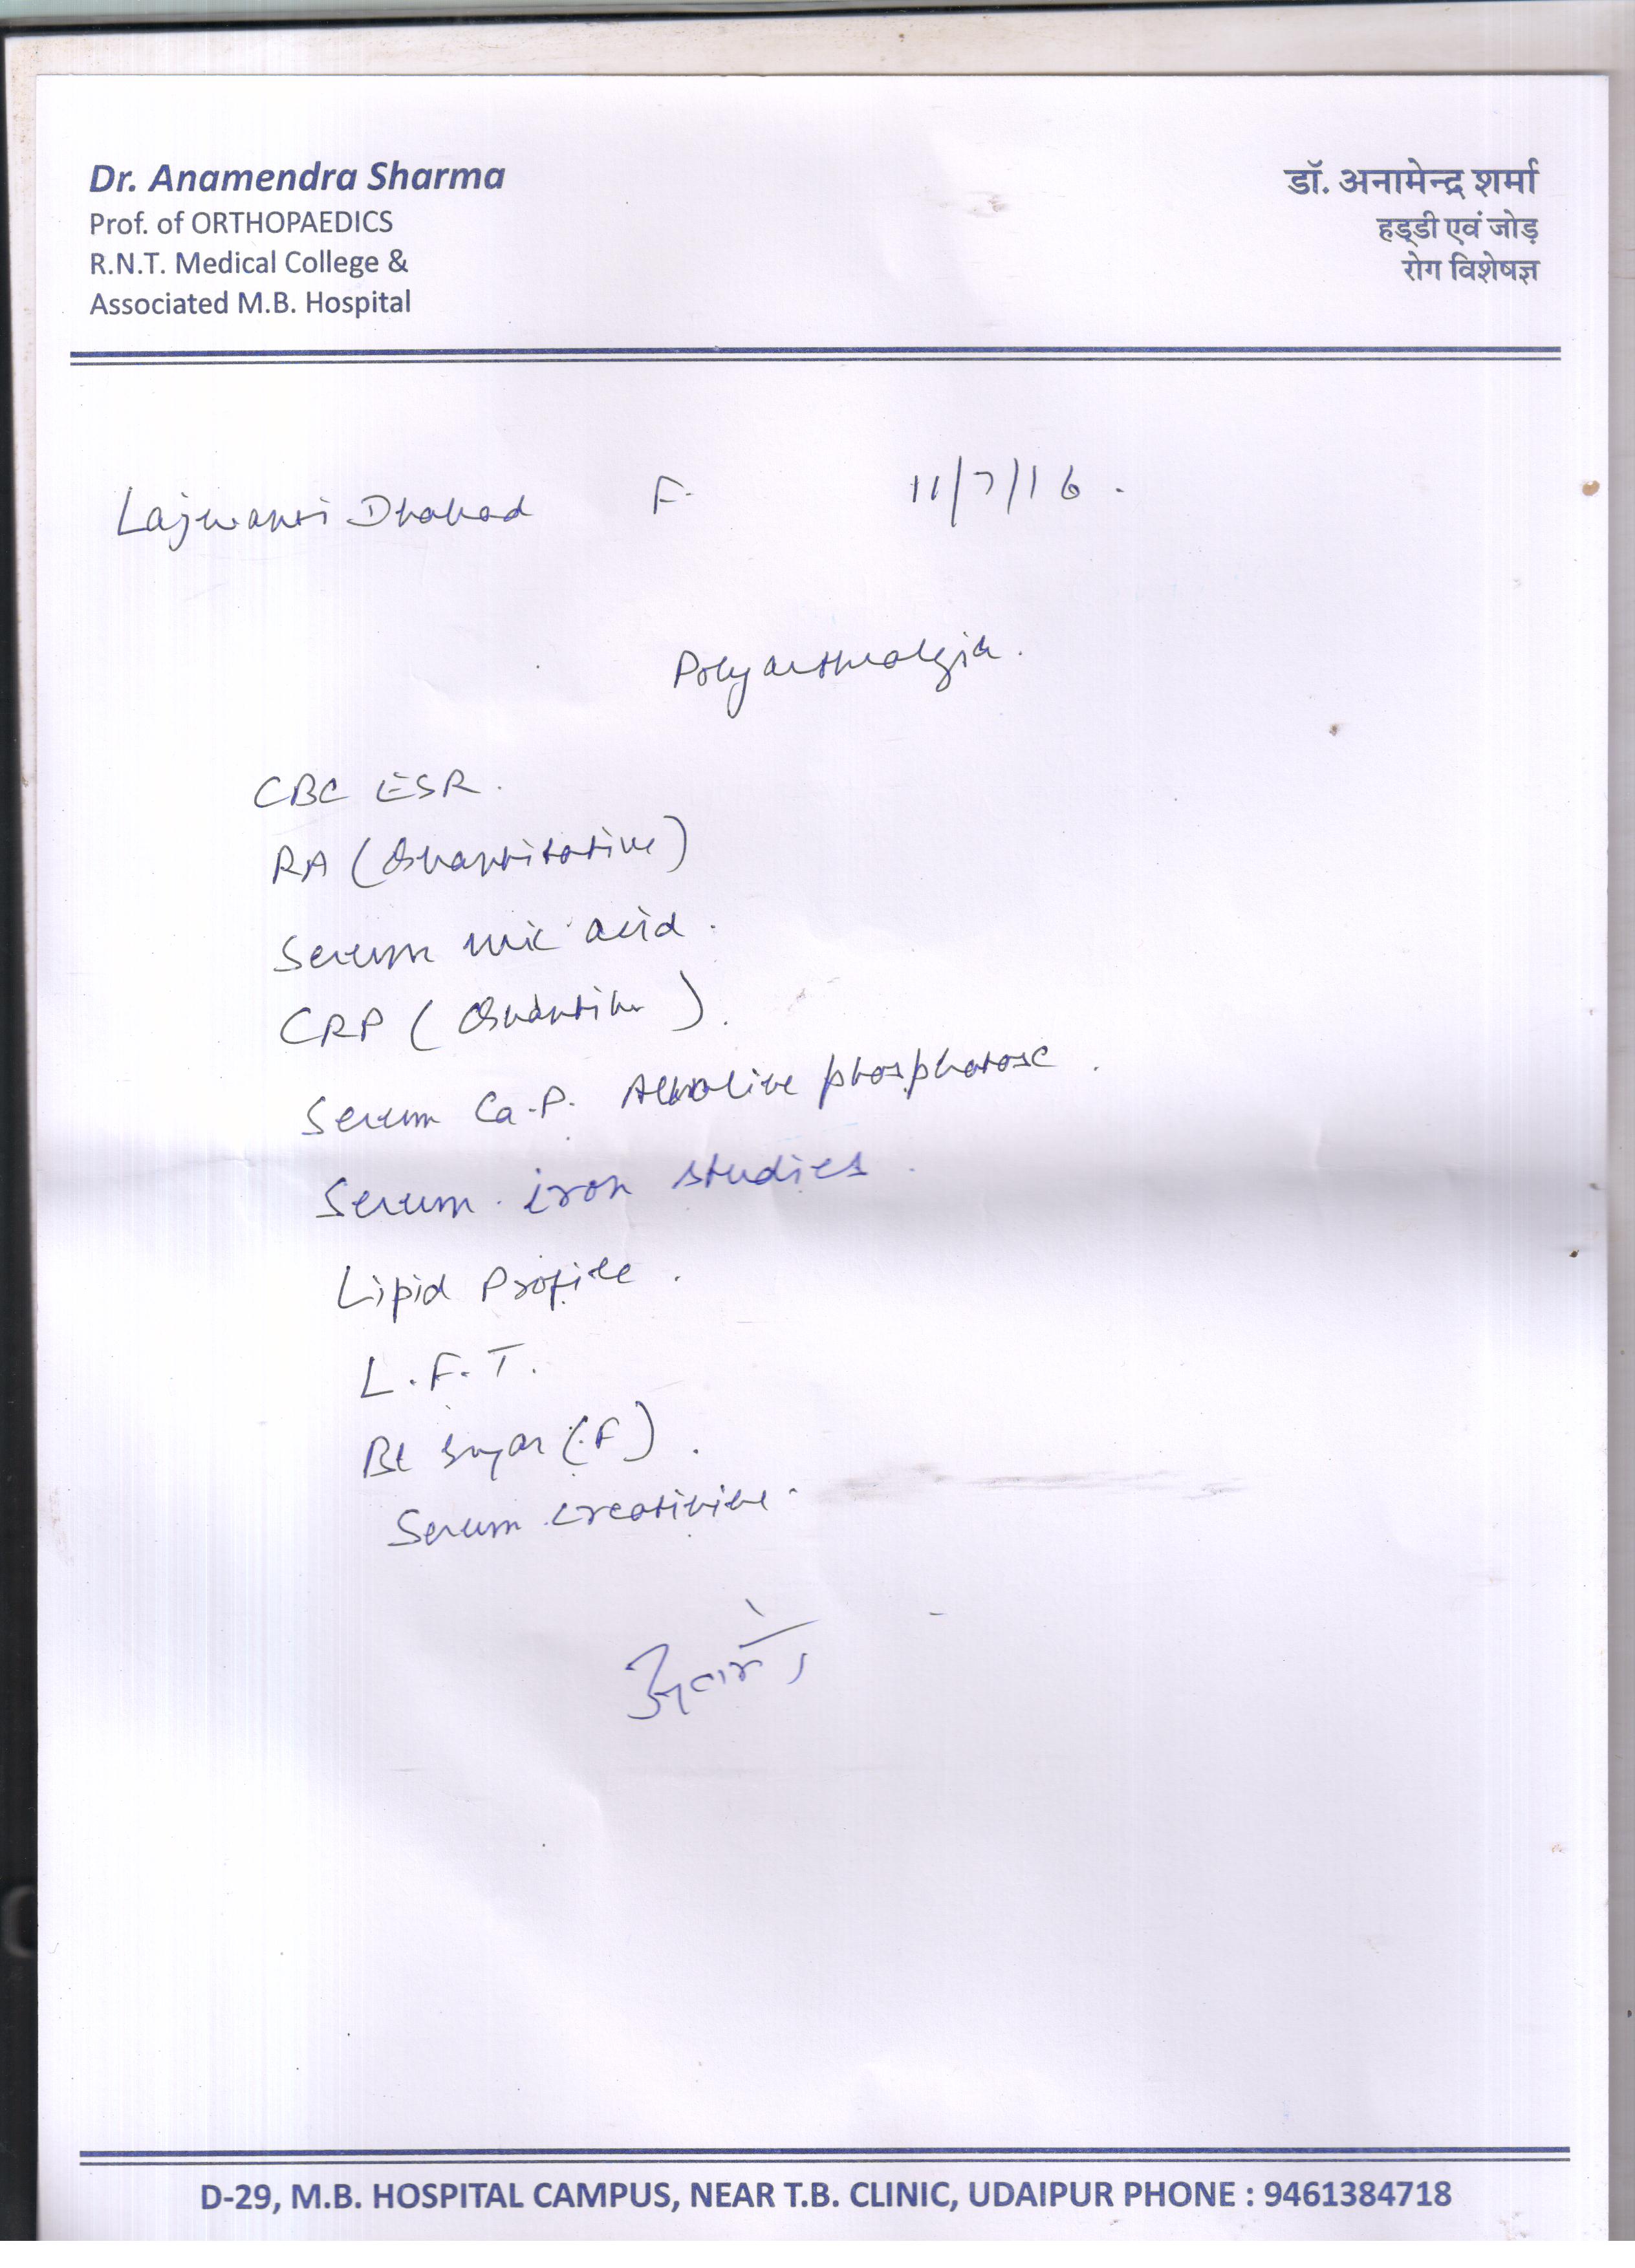 Dr. Anamendra Sharma
Prof. of ORTHOPAEDICS
R.N.T. Medical College &
Associated M.B. Hospital
डॉ. अनामेन्द्र शर्मा
हड्डी एवं जोड़
रोग विशेषज्ञ
Lajwanti Dhakad F. 11/7/16.
Polyarthralgia.
CBC ESR.
RA (Quantitative)
Serum uric acid.
CRP ( ).
Serum Ca.P. Alkaline phosphatase.
Serum iron studies.
Lipid Profile.
L.F.T.
Bl sugar (F).
Serum creatinine.
D-29, M.B. HOSPITAL CAMPUS, NEAR T.B. CLINIC, UDAIPUR PHONE : 9461384718